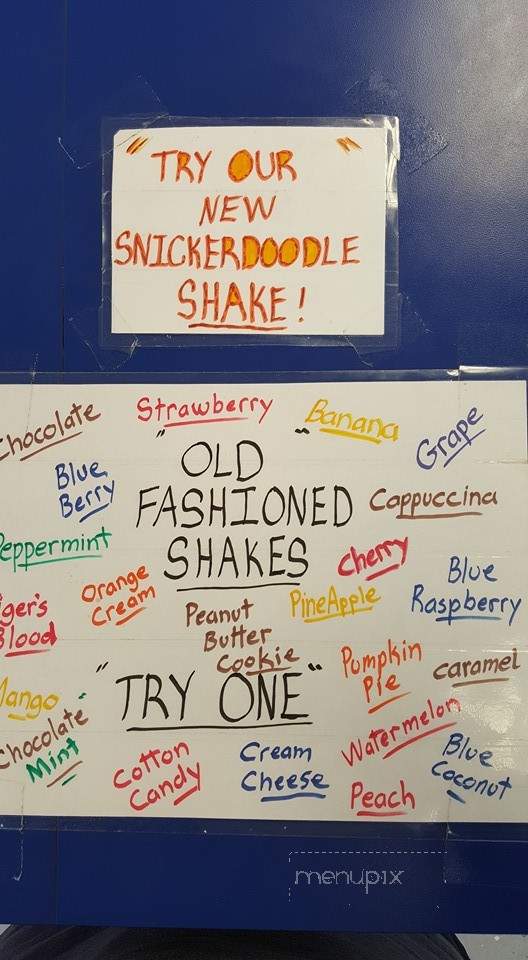 " TRY OUR "
NEW
SNICKERDOODLE
SHAKE!
Chocolate
Strawberry
Banana
Grape
Blue
Berry
"OLD
FASHIONED
SHAKES"
Cappuccina
Peppermint
Cherry
Blue
Raspberry
Orange
Cream
PineApple
iger's
Blood
Peanut
Butter
Cookie
Pumpkin
Pie
caramel
Mango
"TRY ONE"
Chocolate
Mint
Cotton
Candy
Cream
Cheese
Watermelon
Blue
Coconut
Peach
menupix